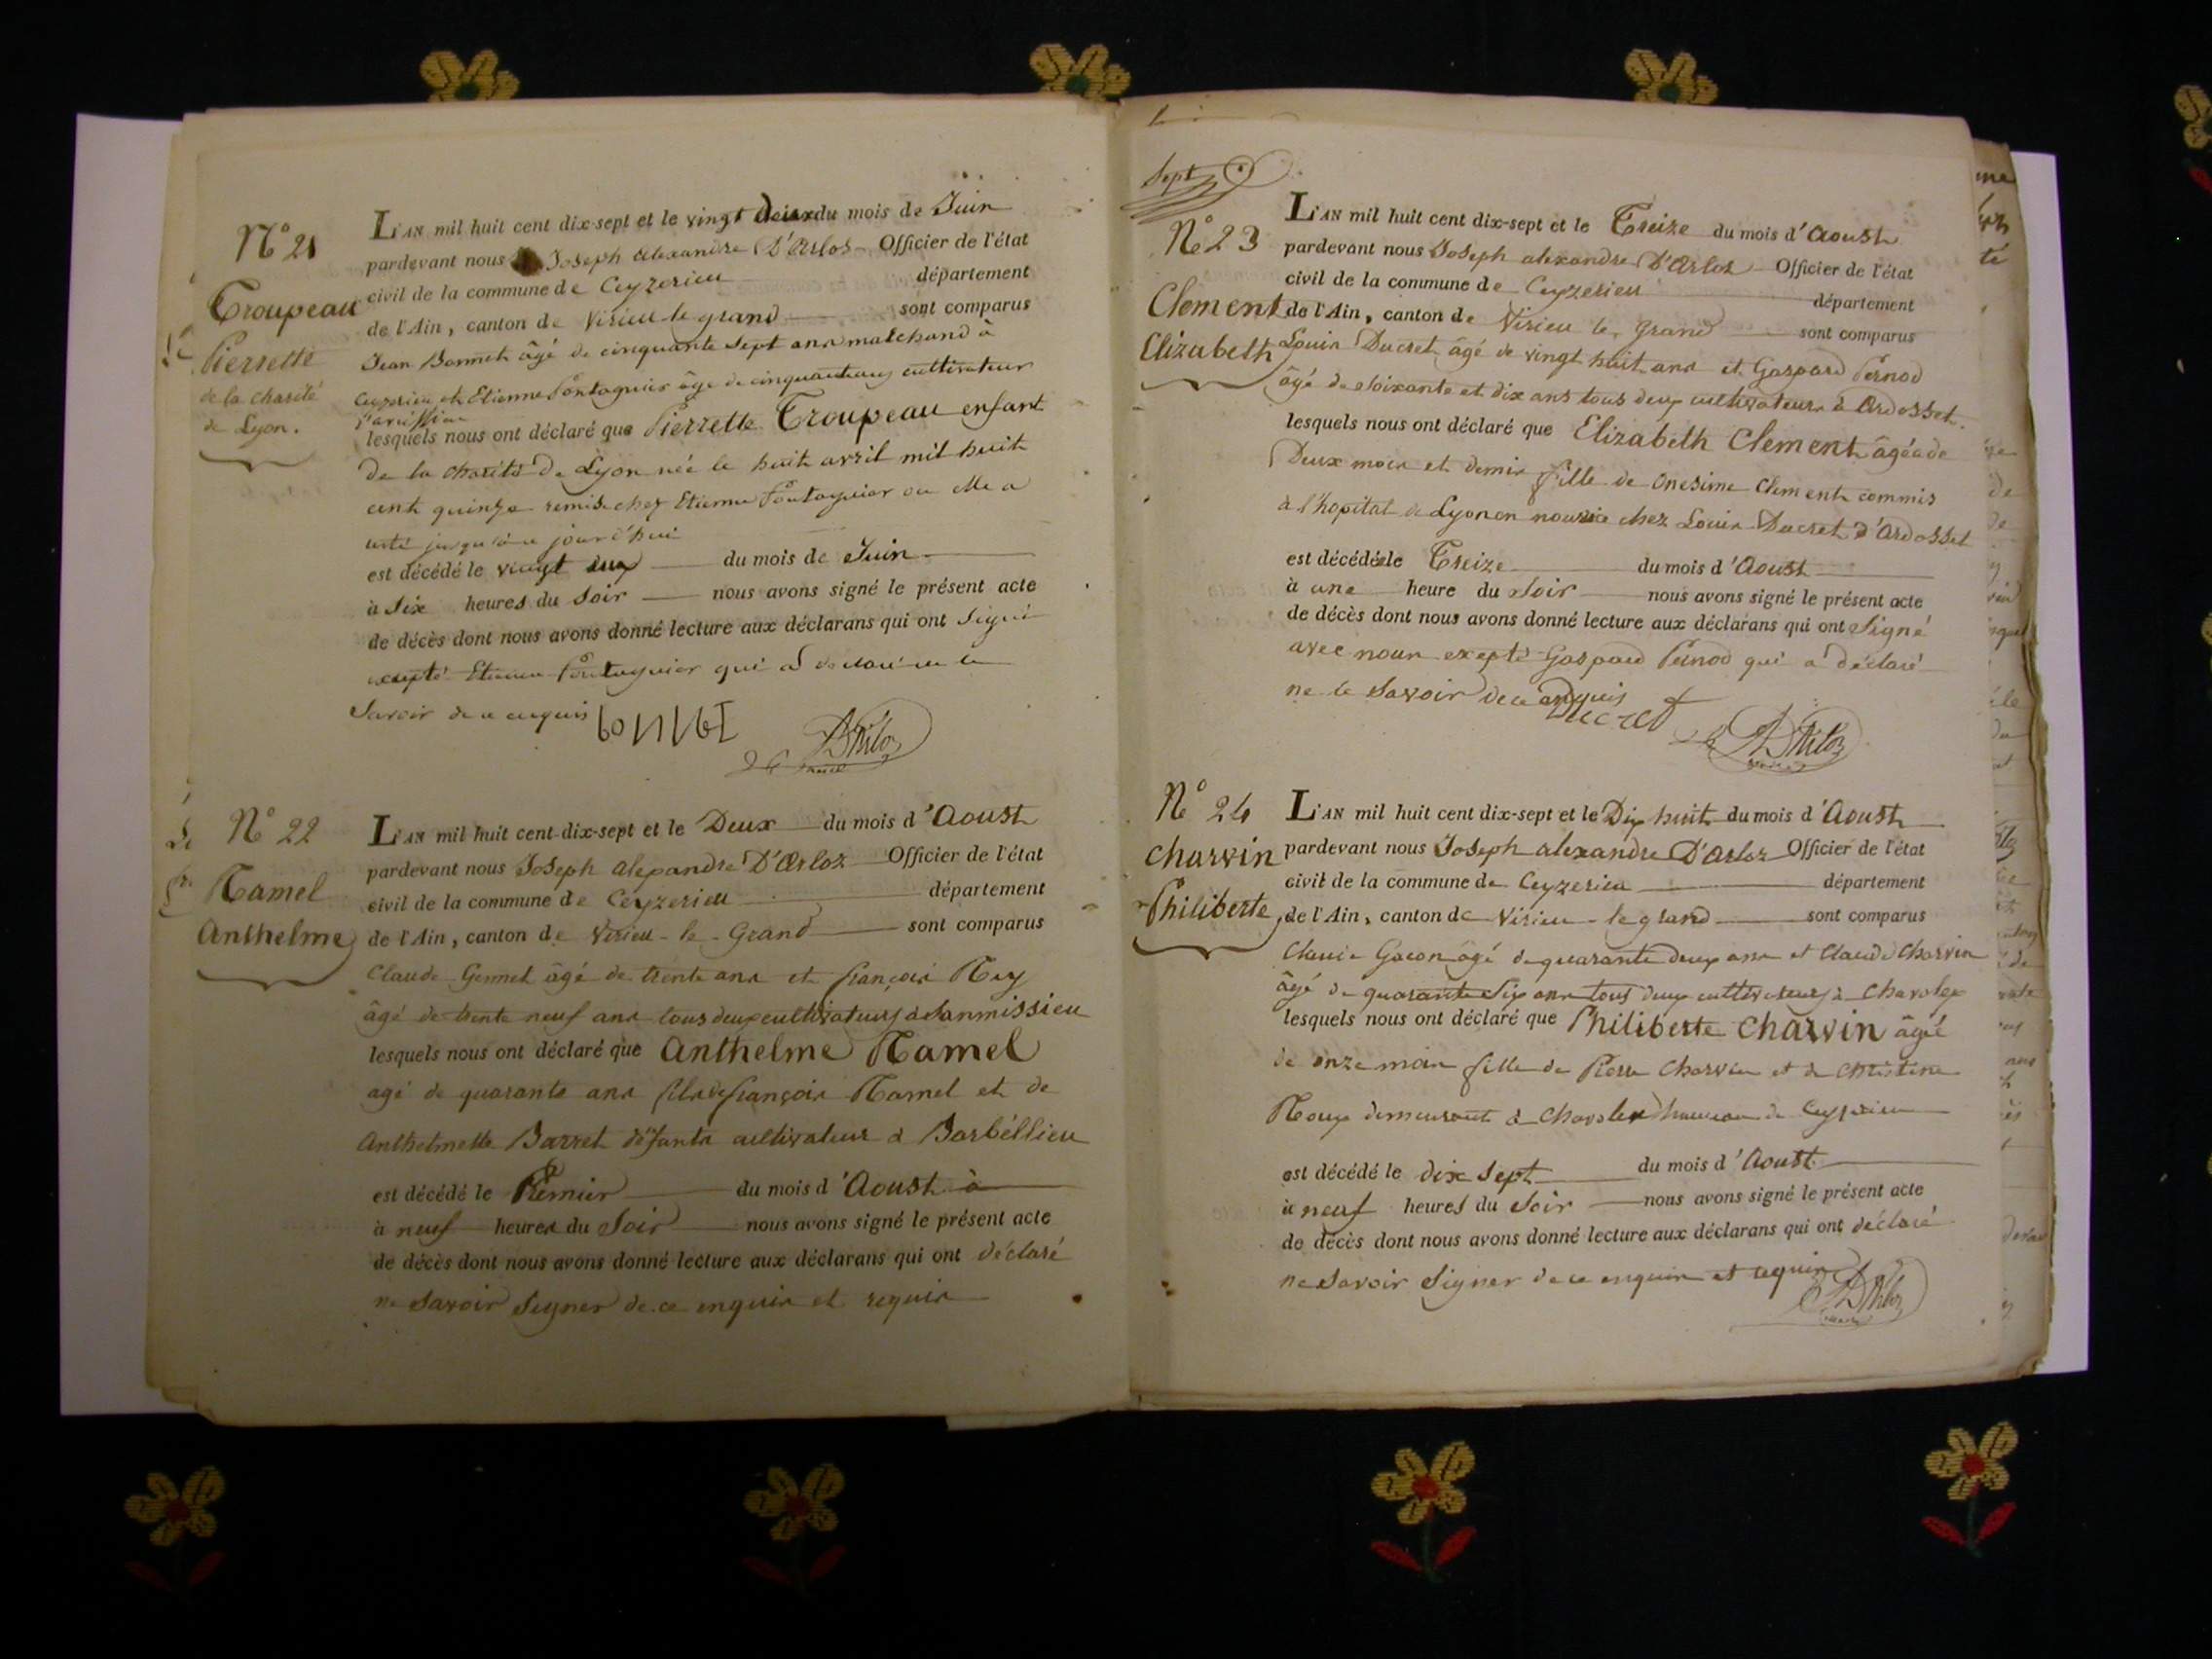 N° 21
Troupeau
Pierrette
de la charité
de Lyon.
L'AN mil huit cent dix-sept et le vingt deux du mois de Juin
pardevant nous Joseph alexandre D'Arloz Officier de l'état
civil de la commune de Ceyzerieu département
de l'Ain, canton de Virieu le grand sont comparus
Jean Bonnet âgé de cinquante Sept ans marchand à
Ceyzerieu et Etienne Pontagnier âgé de cinquante ans cultivateur
lesquels nous ont déclaré que Pierrette Troupeau enfant
De la charité De Lyon née le huit avril mil huit
cent quinze remise chez Etienne Pontagnier ou elle a
resté jusqu'à ce jourd'hui
est décédé le vingt deux du mois de Juin
à Six heures du Soir nous avons signé le présent acte
de décès dont nous avons donné lecture aux déclarans qui ont Signé
excepté Etienne Pontagnier qui a déclaré ne le
Savoir de ce enquis
N° 22
Ramel
Anthelme
L'AN mil huit cent dix-sept et le Deux du mois d'Aoust
pardevant nous Joseph alexandre D'Arloz Officier de l'état
civil de la commune de Ceyzerieu département
de l'Ain, canton de Virieu-le-Grand sont comparus
Claude Gennet âgé de trente ans et françois Rey
âgé de trente neuf ans tous deux cultivateurs à Sanmissieu
lesquels nous ont déclaré que Anthelme Ramel
agé de quarante ans fils de françois Ramel et de
Anthelmette Barret défunts cultivateur à Barbéllieu
est décédé le Premier du mois d'Aoust à
à neuf heures du Soir nous avons signé le présent acte
de décès dont nous avons donné lecture aux déclarans qui ont déclaré
ne Savoir Signer de ce enquis et requis
Sept
N° 23
Clement
Elizabeth
L'AN mil huit cent dix-sept et le Treize du mois d'Aoust
pardevant nous Joseph alexandre D'Arloz Officier de l'état
civil de la commune de Ceyzerieu département
de l'Ain, canton de Virieu le grand sont comparus
Louis Ducret âgé de vingt huit ans et Gaspard Pernod
âgé de Soixante et dix ans tous deux cultivateurs à Ardosset.
lesquels nous ont déclaré que Elizabeth Clement âgée de
Deux mois et demis fille de Onesime Clement commis
à l'hopital de Lyon en nourice chez Louis Ducret d'Ardosset
est décédée le Treize du mois d'Aoust
à une heure du Soir nous avons signé le présent acte
de décès dont nous avons donné lecture aux déclarans qui ont Signé
avec nous excepté Gaspard Pernod qui a déclaré
ne le Savoir de ce enquis
Ducret
N° 24
Charvin
Philiberte
L'AN mil huit cent dix-sept et le Dix huit du mois d'Aoust
pardevant nous Joseph alexandre D'Arloz Officier de l'état
civil de la commune de Ceyzerieu département
de l'Ain, canton de Virieu-le grand sont comparus
Claude Gacon âgé de quarante deux ans et Claude Charvin
âgé de quarante Six ans tous deux cultivateurs à Chavolex
lesquels nous ont déclaré que Philiberte Charvin âgée
de onze mois fille de Pierre Charvin et de Christine
Roux demeurant à Chavolex hameau de Ceyzerieu
est décédé le dix Sept du mois d'Aoust
à neuf heures du Soir nous avons signé le présent acte
de décès dont nous avons donné lecture aux déclarans qui ont déclaré
ne Savoir Signer de ce enquis et requis